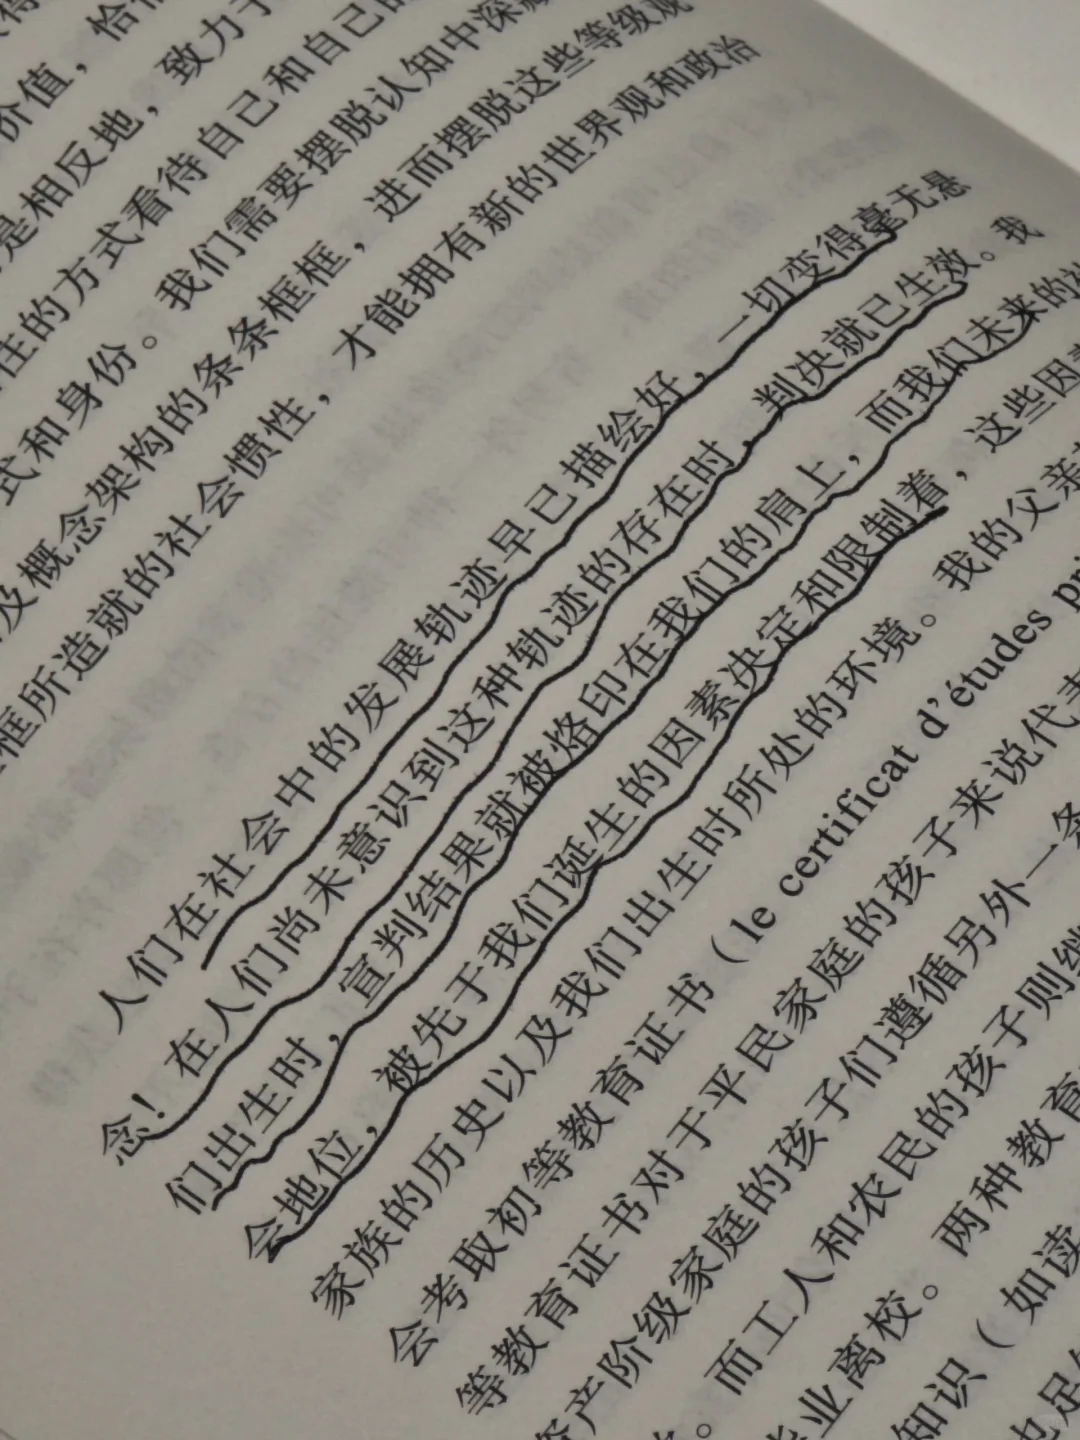 价值，恰
是相反地，致力于
住的方式看待自己和自己的
式和身份。我们需要摆脱认知中深藏
及概念架构的条条框框，进而摆脱这些等级观
框所造就的社会惯性，才能拥有新的世界观和政治
人们在社会中的发展轨迹早已描绘好，一切变得毫无悬
念！在人们尚未意识到这种轨迹的存在时，判决就已生效。我
们出生时，宣判结果就被烙印在我们的肩上，而我们未来的社
会地位，被先于我们诞生的因素决定和限制着，这些因素
家族的历史以及我们出生时所处的环境。我的父亲
会考取初等教育证书（le certificat d’études pri
等教育证书对于平民家庭的孩子来说代表
资产阶级家庭的孩子们遵循另外一条
。而工人和农民的孩子则继
毕业离校。两种教育
知识（如读
也足